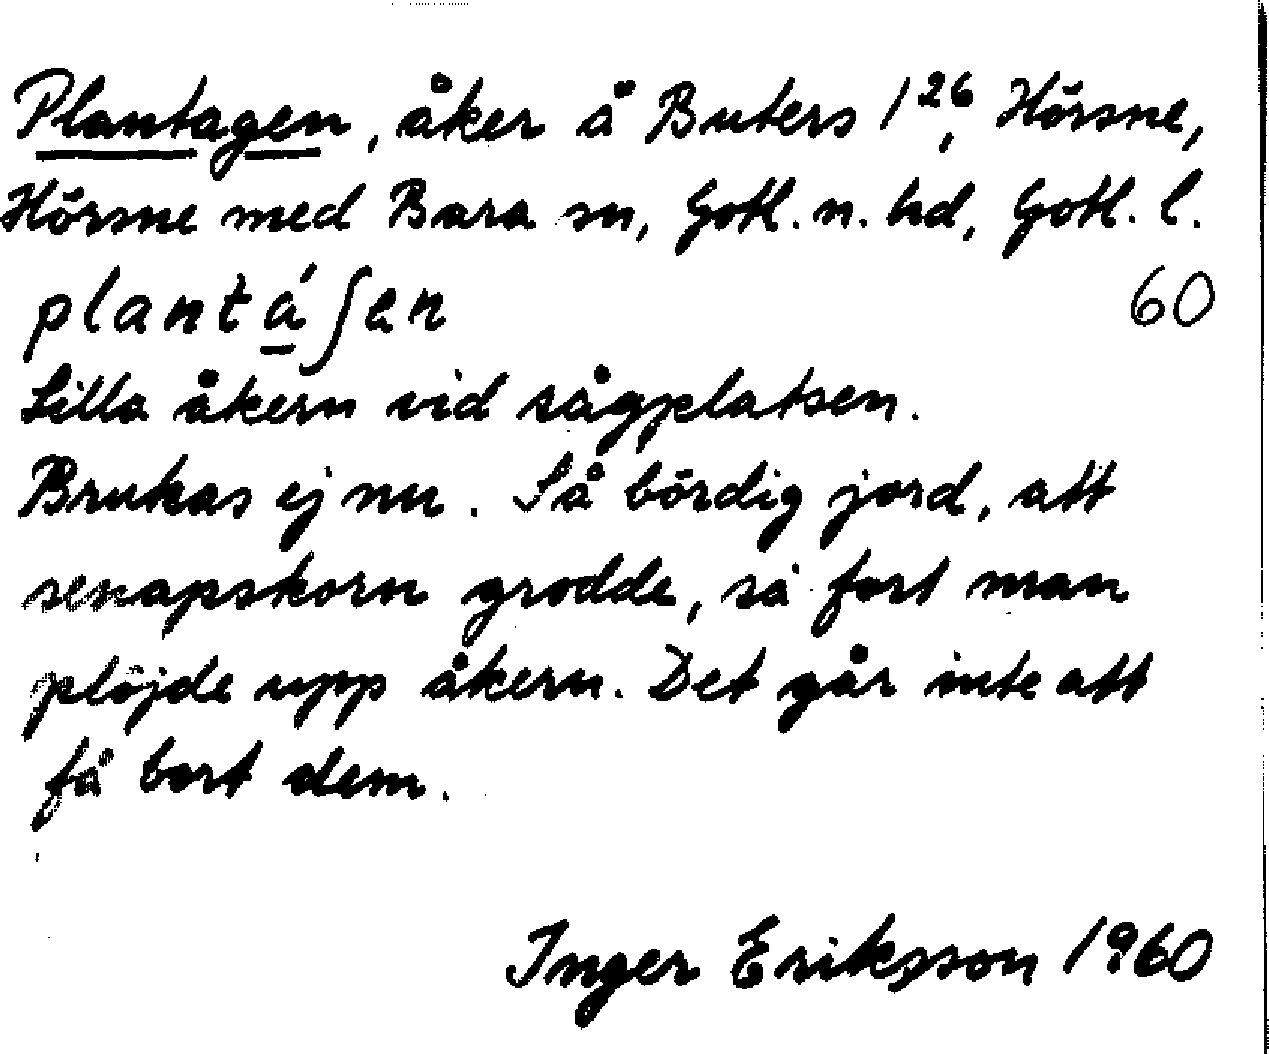 Plantagen, åker å Buters 1²⁶, Hörsne,
Hörsne med Bara sn, Gotl. n. hd, Gotl. l.
plantá̱ʃen 60
Lilla åkern vid sågplatsen.
Brukas ej nu. Så bördig jord, att
senapskorn grodde, så fort man
plöjde upp åkern. Det går inte att
få bort dem.
Inger Eriksson 1960